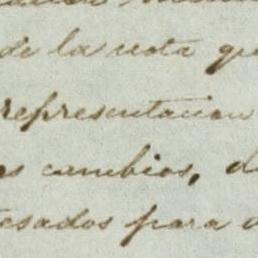 de la nota qu
representacion
os cambios, d
esados para